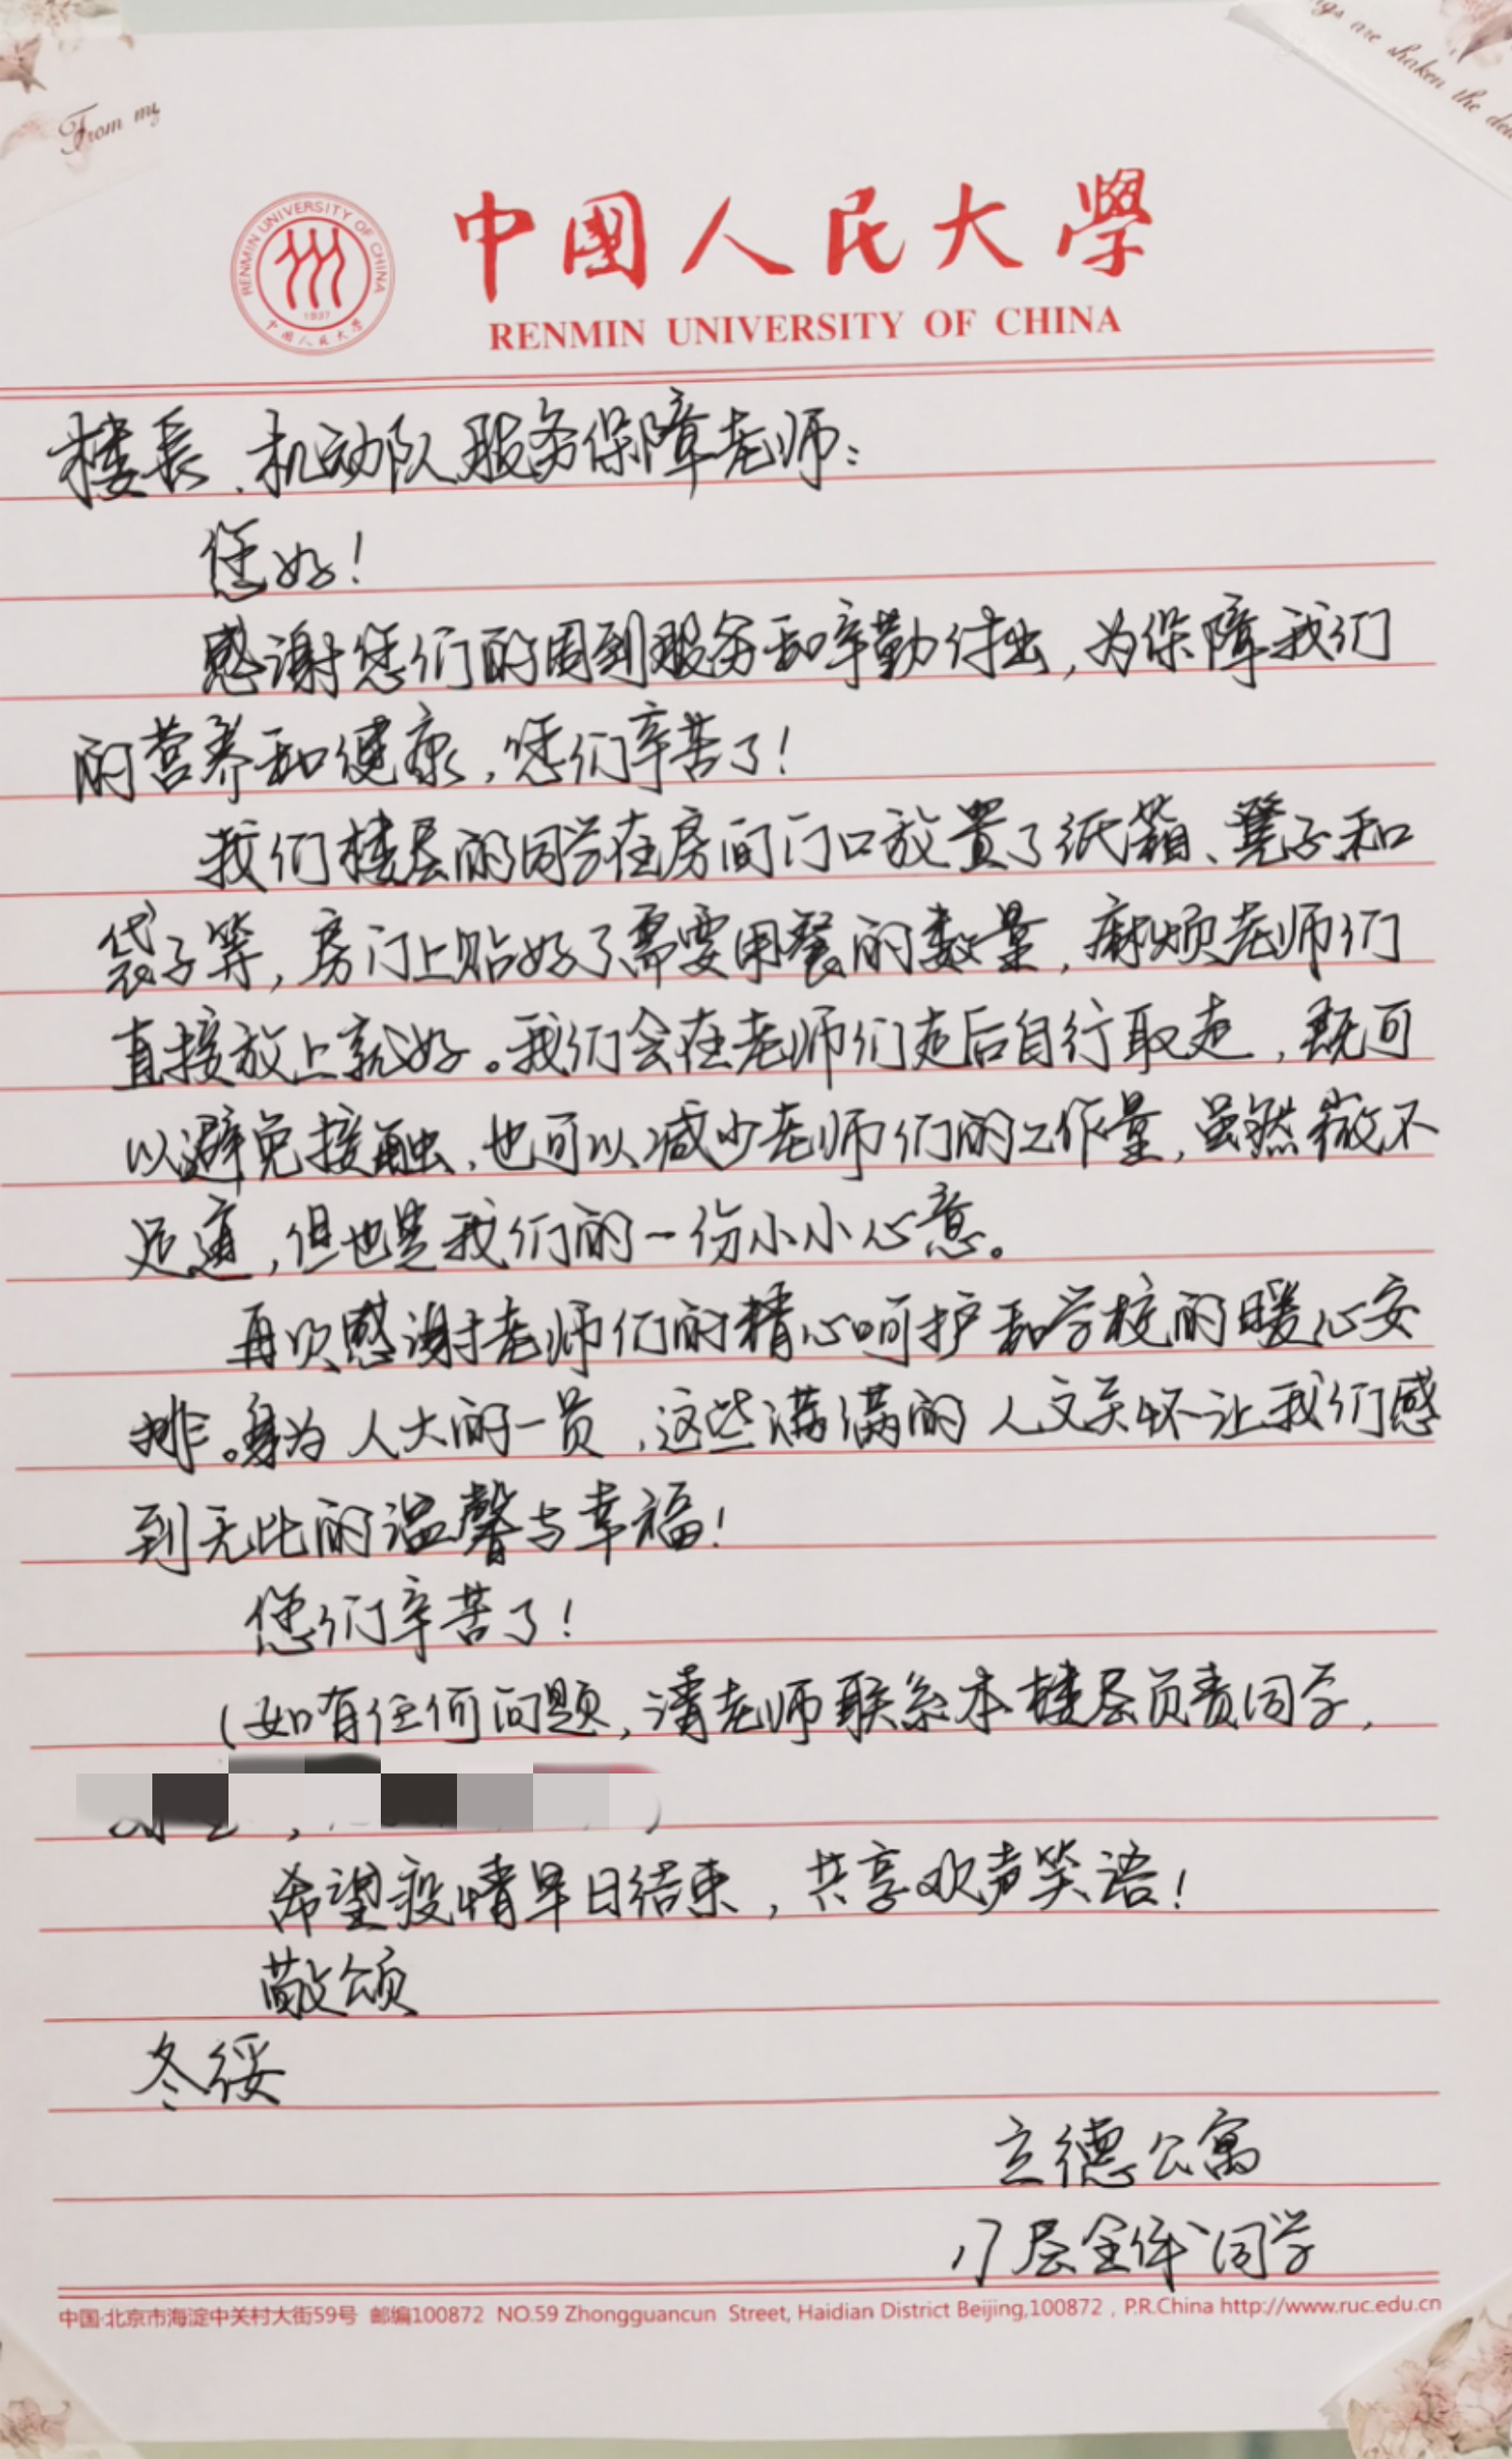 From my
gs are shaken the
RENMIN UNIVERSITY OF CHINA
1937
中国人民大学
中國人民大學
RENMIN UNIVERSITY OF CHINA
楼長、机动队服务保障老师：
您好！
感谢您们的周到服务和辛勤付出，为保障我们
的营养和健康，您们辛苦了！
我们楼层的同学在房间门口放置了纸箱、凳子和
袋子等，房门上贴好了需要用餐的数量，麻烦老师们
直接放上就好。我们会在老师们走后自行取走，既可
以避免接触，也可以减少老师们的工作量，虽然微不
足道，但也是我们的一份小小心意。
再次感谢老师们的精心呵护和学校的暖心安
排。身为人大的一员，这些满满的人文关怀让我们感
到无比的温馨与幸福！
您们辛苦了！
（如有任何问题，请老师联系本楼层负责同学，
）
希望疫情早日结束，共享欢声笑语！
敬颂
冬绥
立德公寓
17层全体同学
中国·北京市海淀中关村大街59号 邮编100872 NO.59 Zhongguancun Street, Haidian District Beijing,100872 , P.R.China http://www.ruc.edu.cn